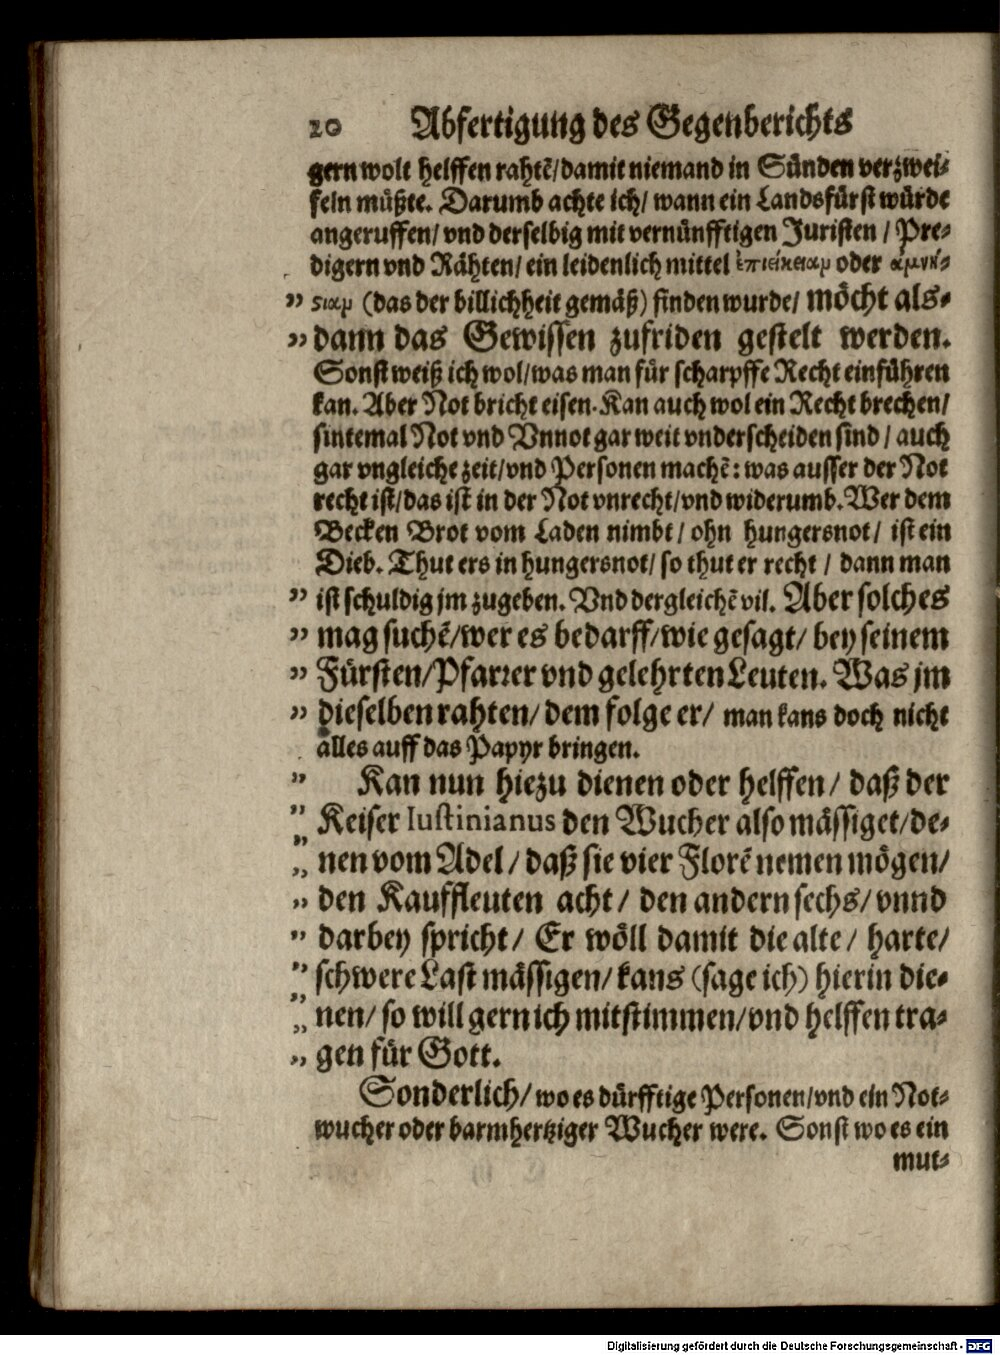 20 Abfertigung des Gegenberichts
gern wolt helffen rahtē/damit niemand in Sünden verzwei-
feln müßte. Darumb achte ich/ wann ein Landsfürst würde
angeruffen/ vnd derselbig mit vernünfftigen Juristen / Pre-
digern vnd Rähten/ ein leidenlich mittel ἐπιείκειαμ oder ἀμνη-
ςιαμ (das der billichheit gemäß) finden wurde/ möcht als-
dann das Gewissen zufriden gestelt werden.
Sonst weiß ich wol/was man für scharpffe Recht einführen
kan. Aber Not bricht eisen. Kan auch wol ein Recht brechen/
sintemal Not vnd Vnnot gar weit vnderscheiden sind / auch
gar vngleiche zeit/vnd Personen machē: was ausser der Not
recht ist/das ist in der Not vnrecht/vnd widerumb. Wer dem
Becken Brot vom Laden nimbt / ohn hungersnot/ ist ein
Dieb. Thut ers in hungersnot/ so thut er recht / dann man
ist schuldig jm zugeben. Vnd dergleichē vil. Aber solches
mag suchē/wer es bedarff/wie gesagt/ bey seinem
Fürsten/Pfarrer vnd gelehrten Leuten. Was jm
dieselben rahten/ dem folge er/ man kans doch nicht
alles auff das Papyr bringen.
Kan nun hiezu dienen oder helffen / daß der
Keiser Iustinianus den Wucher also mässiget/de-
nen vom Adel / daß sie vier Florē nemen mögen/
den Kauffleuten acht / den andern sechs/ vnnd
darbey spricht/ Er wöll damit die alte / harte/
schwere Last mässigen/ kans (sage ich) hierin die-
nen/ so will gern ich mitstimmen/vnd helffen tra-
gen für Gott.
Sonderlich/ wo es dürfftige Personen/vnd ein Not-
wucher oder barmhertziger Wucher were. Sonst wo es ein
mut-
Digitalisierung gefördert durch die Deutsche Forschungsgemeinschaft - DFG